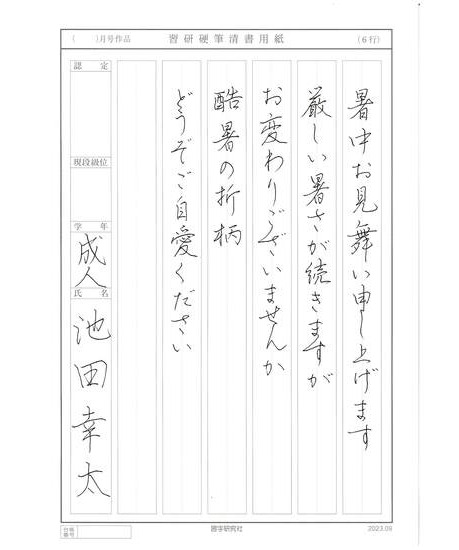 (　　)月号作品　習研硬筆清書用紙　(6行)
暑中お見舞い申し上げます
厳しい暑さが続きますが
お変わりございませんか
酷暑の折柄
どうぞご自愛ください
認定
現段級位
学年
成人
氏名
池田幸太
出版番号
國字研究社
2023.09